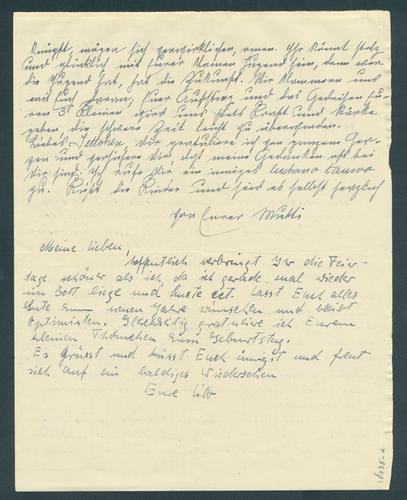 wünscht, mögen sich verwirklichen, amen. Ihr könnt stolz
und glücklich mit Eurer kleinen Jugend sein, denn wer
die Jugend hat, hat die Zukunft. Wir klammern uns
mit Euch daran, Euer Aufstieg und das Gedeihen Eu-
rer 3 Kleinen wird uns stets Kraft und Stärke
geben, die schwere Zeit leicht zu überstehen.
Liebes, Dir gratuliere ich von ganzem Her-
zen und versichere Dir, daß meine Gedanken oft bei
Dir sind. Ich rufe Dir ein inniges
zu. Küßt die Kinder und seid es selbst herzlich
von Eurer Mutti
Meine Lieben,
hoffentlich verbringt Ihr die Feier-
tage schöner als ich, da ich gerade mal wieder
im Bett liege und huste ect. Lasst Euch alles
Gute zum neuen Jahre wünschen und bleibt
Optimisten. Gleichzeitig gratuliere ich Eurem
kleinen zum Geburtstag.
Es grüsst und küsst Euch innigst und freut
sich auf ein baldiges Wiedersehen
Eure